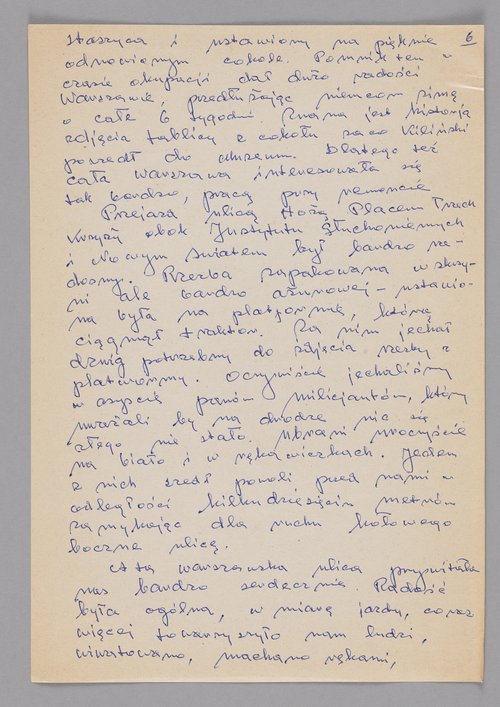 6
Staszyca i ustawiony na pięknie
odnowionym cokole. Pomnik ten w
czasie okupacji dał dużo radości
Warszawie, przedłużając niemcom zimę
o całe 6 tygodni. Znana jest historia
zdjęcia tablicy z cokołu za co Kiliński
poszedł do Muzeum. Dlatego też
cała Warszawa interesowała się
tak bardzo, pracą przy remoncie
Przejazd ulicą Hożą Placem Trzech
Krzyży obok Instytutu Głuchoniemych
i Nowym Światem był bardzo ra-
dosny. Rzeźba zapakowana w skrzy-
ni ale bardzo ażurowej - ustawio-
na była na platformie, którą
ciągnął traktor. Za nim jechał
dźwig potrzebny do zdjęcia rzeźby z
platwormy. Oczywiście jechaliśmy
w asyście panów milicjantów, którzy
uważali by na drodze nic się
złego nie stało. Ubrani uroczyście
na biało i w rękawiczkach. Jeden
z nich szedł powoli przed nami w
odległości kilkudziesięciu metrów
zamykając dla ruchu kołowego
boczne ulicę.
A ta warszawska ulica przywitała
nas bardzo serdecznie. Radość
była ogólna, w miarę jazdy, coraz
więcej towarzyszyło nam ludzi,
wiwatowano, machano rękami,